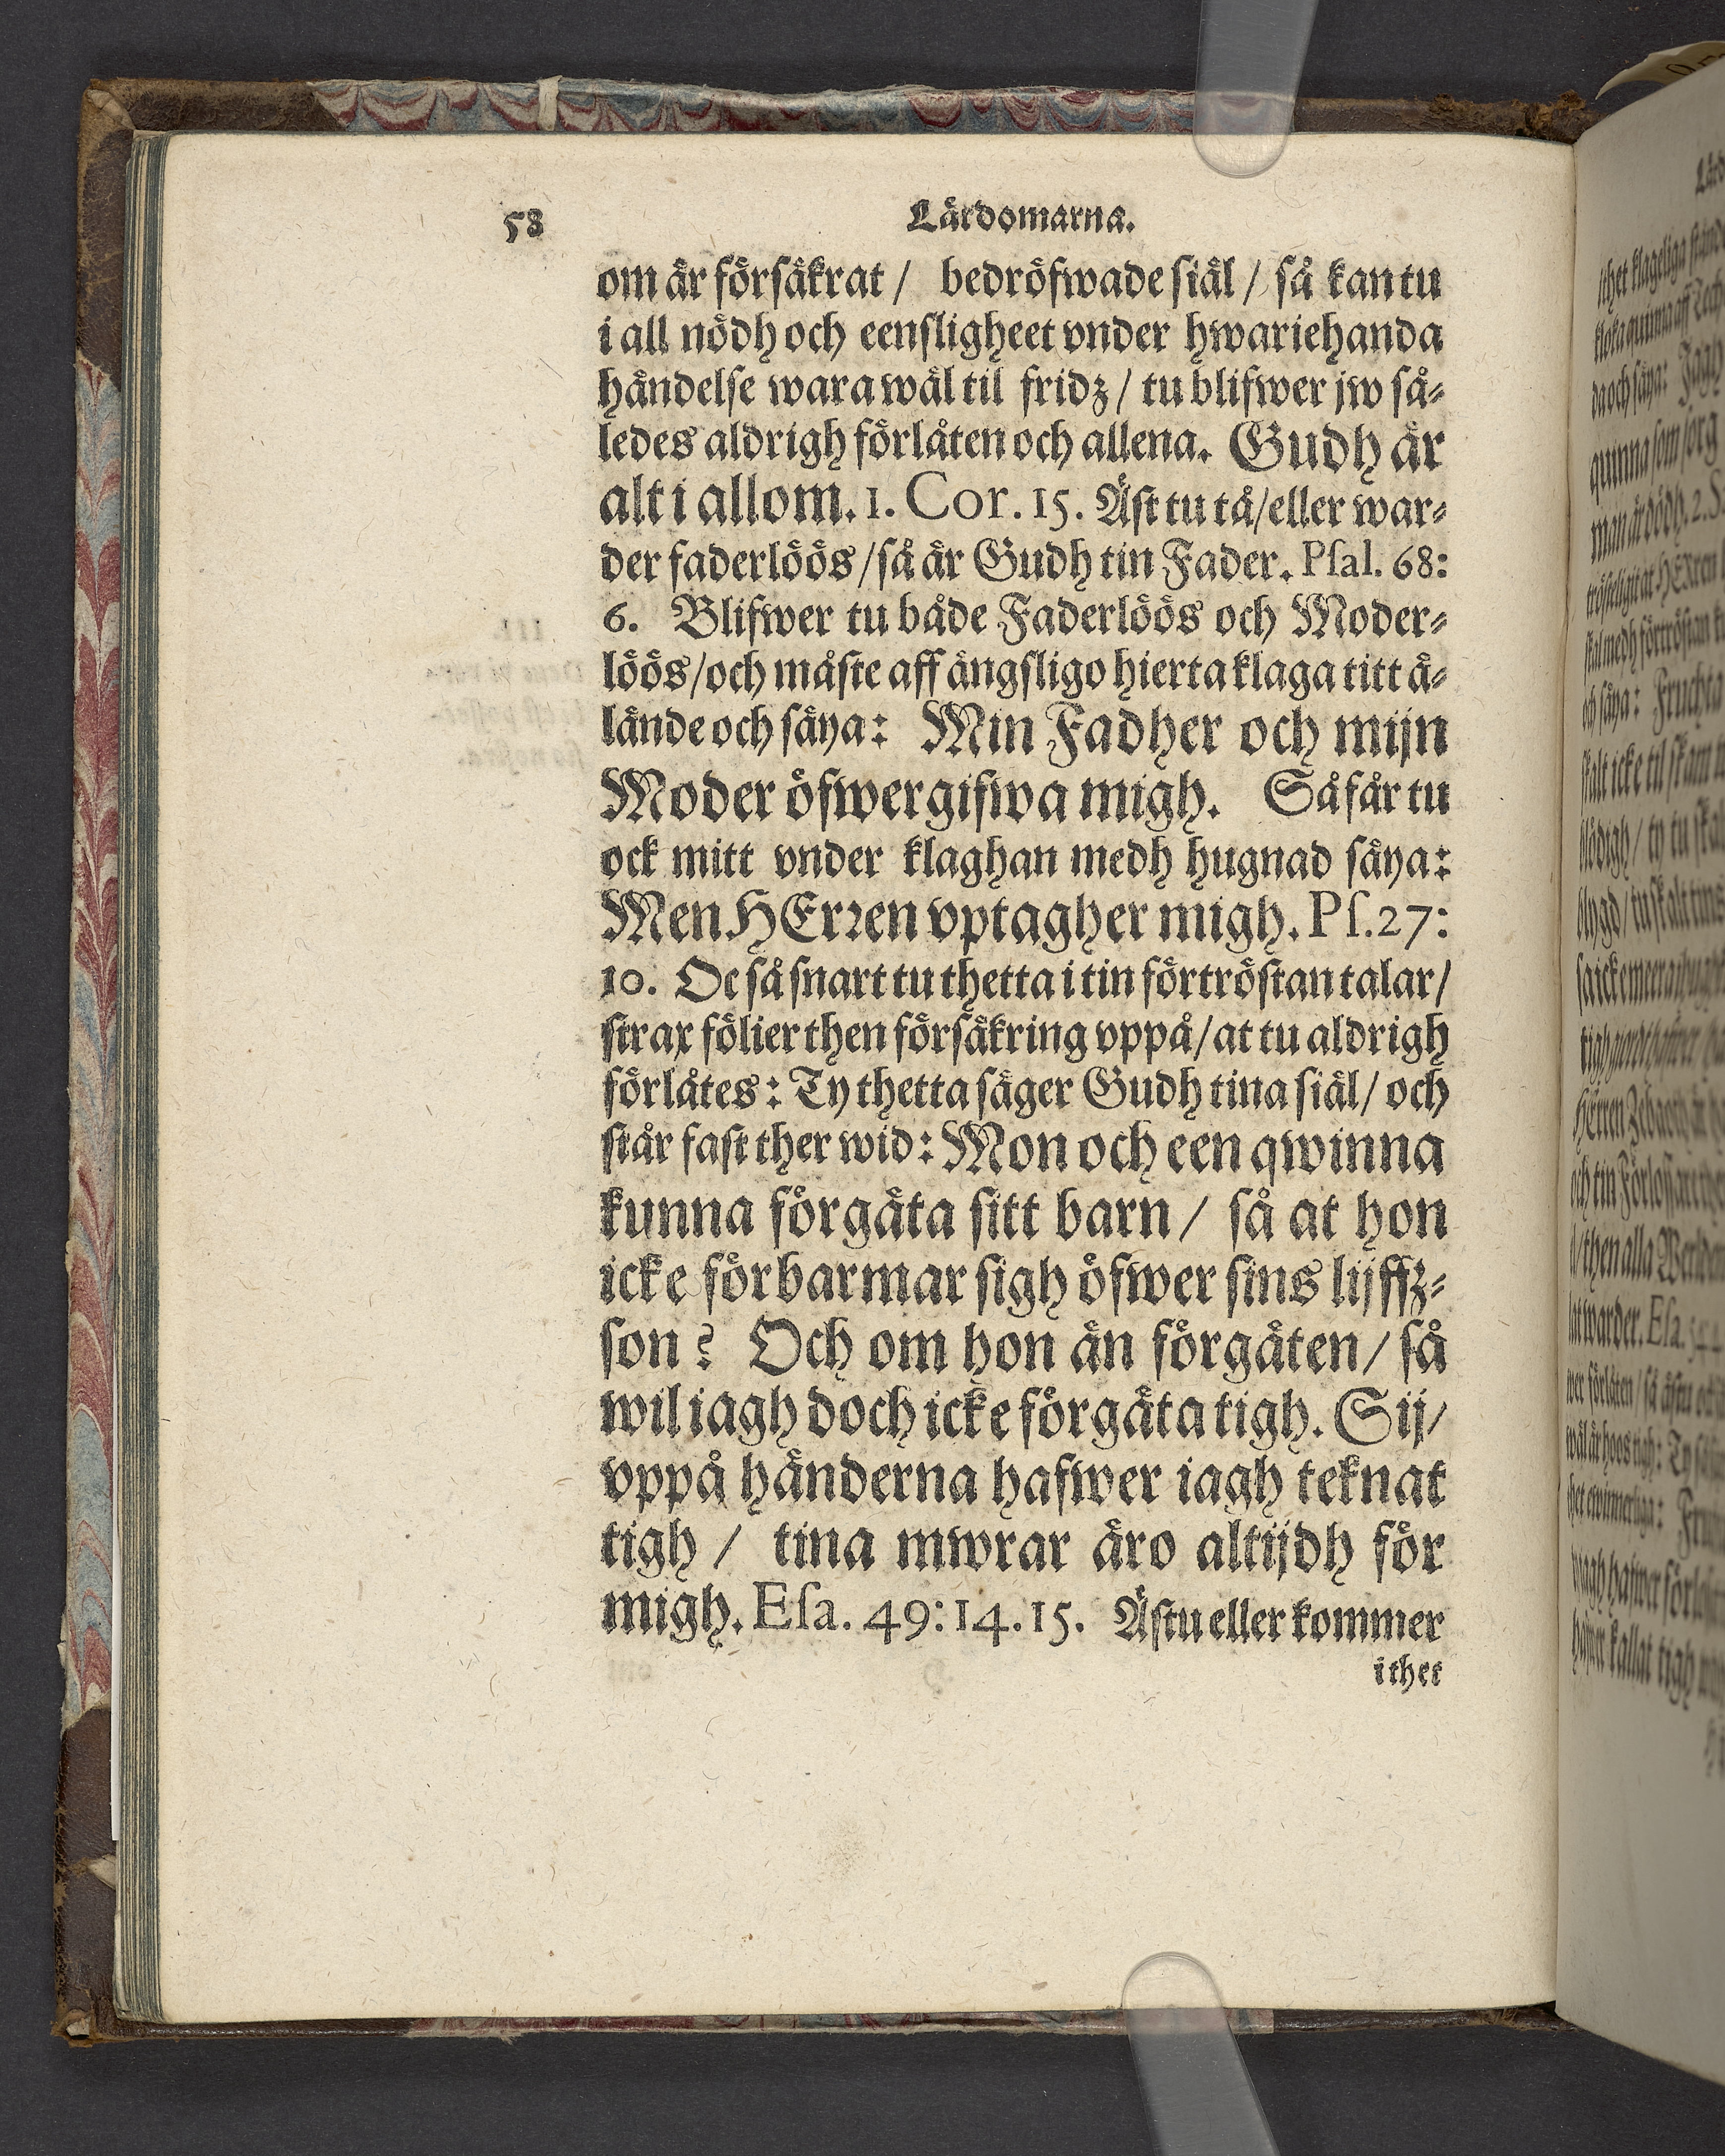 58 Lärdomarna.
om är försäkrat / bedröfwade siäl / så kan tu
i all nödh och eensligheet vnder hwariehanda
händelse wara wäl til fridz / tu blifwer jw så-
ledes aldrigh förlåten och allena. Gudh är
alt i allom. 1. Cor. 15. Äst tu tå/eller war-
der faderlöös/så är Gudh tin Fader. Psal. 68:
6. Blifwer tu både Faderlöös och Moder-
löös/och måste aff ängsligo hierta klaga titt ä-
lände och säya: Min Fadher och mijn
Moder öfwergifwa migh. Så får tu
ock mitt vnder klaghan medh hugnad säya:
Men HErren vptagher migh. Ps. 27:
10. Oc så snart tu thetta i tin förtröstan talar/
strax fölier then försäkring vppå/at tu aldrigh
förlåtes: Ty thetta säger Gudh tina siäl/ och
står fast ther wid: Mon och een qwinna
kunna förgäta sitt barn / så at hon
icke förbarmar sigh öfwer sins lijffz-
son? Och om hon än förgäten/ så
wil iagh doch icke förgäta tigh. Sij/
vppå händerna hafwer iagh teknat
tigh / tina mwrar äro altijdh för
migh. Esa. 49: 14. 15. Ästu eller kommer
i thet